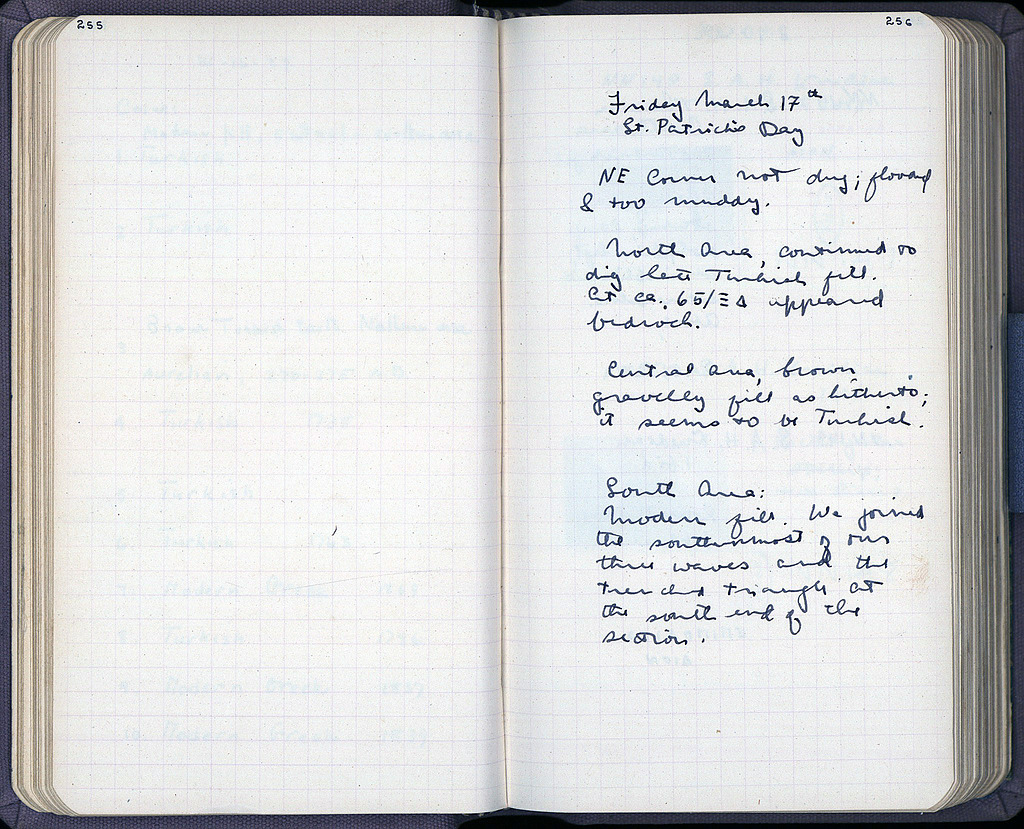 255
256
Friday March 17th
St. Patrick's Day
NE Corner not dug; flooded
& too muddy.
North Area, continued to
dig late Turkish fill.
At ca. 65/ΞΔ appeared
bedrock.
Central Area, brown
gravelly fill as hitherto;
it seems to be Turkish.
South Area:
Modern fill. We joined
the southernmost of our
three waves and the
trenched triangle at
the south end of the
section.